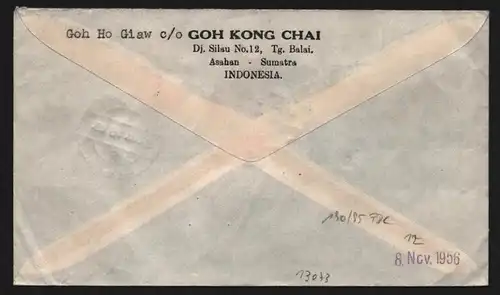 Goh Ho Giaw c/o GOH KONG CHAI
Dj. Silau No.12, Tg. Balai.
Asahan - Sumatra
INDONESIA.
190/95 FDC
12
8 Nov. 1956
13033